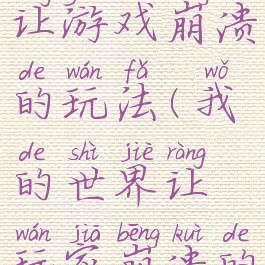 让游戏崩溃
de wán fǎ wǒ
的玩法(我
de shì jiè ràng
的世界让
wán jiā bēng kuì de
玩家崩溃的